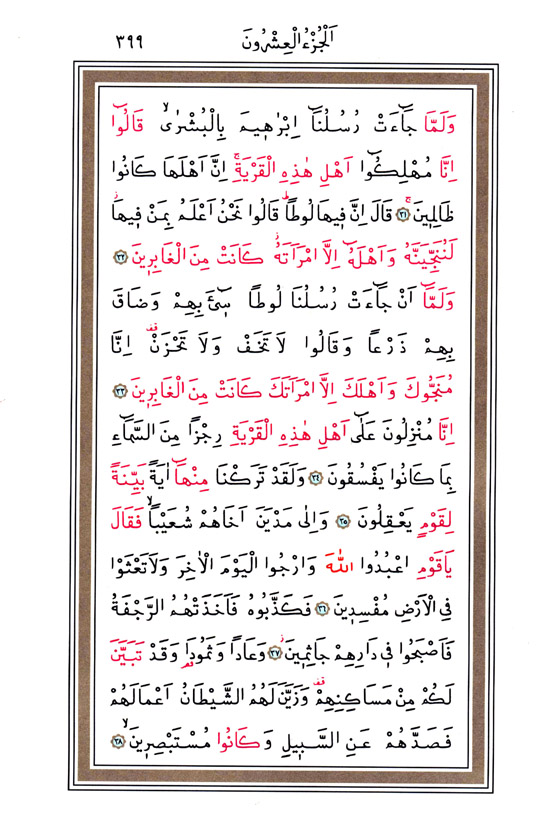 اَلْجُزْءُ الْعِشْرُونَ ٣٩٩
وَلَمَّا جَٓاءَتْ رُسُلُنَٓا اِبْرٰه۪يمَ بِالْبُشْرٰىۙ قَالُٓوا
اِنَّا مُهْلِكُٓوا اَهْلِ هٰذِهِ الْقَرْيَةِۚ اِنَّ اَهْلَهَا كَانُوا
ظَالِم۪ينَۚ ﴿٣١﴾ قَالَ اِنَّ ف۪يهَا لُوطًاۜ قَالُوا نَحْنُ اَعْلَمُ بِمَنْ ف۪يهَاۘ
لَنُنَجِّيَنَّهُ وَاَهْلَهُٓ اِلَّا امْرَاَتَهُۘ كَانَتْ مِنَ الْغَابِر۪ينَ ﴿٣٢﴾
وَلَمَّٓا اَنْ جَٓاءَتْ رُسُلُنَا لُوطًا س۪ٓيءَ بِهِمْ وَضَاقَ
بِهِمْ ذَرْعًا وَقَالُوا لَا تَخَفْ وَلَا تَحْزَنْ۠ اِنَّا
مُنَجُّوكَ وَاَهْلَكَ اِلَّا امْرَاَتَكَ كَانَتْ مِنَ الْغَابِر۪ينَ ﴿٣٣﴾
اِنَّا مُنْزِلُونَ عَلٰٓى اَهْلِ هٰذِهِ الْقَرْيَةِ رِجْزًا مِنَ السَّمَٓاءِ
بِمَا كَانُوا يَفْسُقُونَ ﴿٣٤﴾ وَلَقَدْ تَرَكْنَا مِنْهَٓا اٰيَةً بَيِّنَةً
لِقَوْمٍ يَعْقِلُونَ ﴿٣٥﴾ وَاِلٰى مَدْيَنَ اَخَاهُمْ شُعَيْبًاۙ فَقَالَ
يَاقَوْمِ اعْبُدُوا اللّٰهَ وَارْجُوا الْيَوْمَ الْاٰخِرَ وَلَا تَعْثَوْا
فِي الْاَرْضِ مُفْسِد۪ينَ ﴿٣٦﴾ فَكَذَّبُوهُ فَاَخَذَتْهُمُ الرَّجْفَةُ
فَاَصْبَحُوا ف۪ي دَارِهِمْ جَاثِم۪ينَۘ ﴿٣٧﴾ وَعَادًا وَثَمُودَا۬ وَقَدْ تَبَيَّنَ
لَكُمْ مِنْ مَسَاكِنِهِمْ۠ وَزَيَّنَ لَهُمُ الشَّيْطَانُ اَعْمَالَهُمْ
فَصَدَّهُمْ عَنِ السَّب۪يلِ وَكَانُوا مُسْتَبْصِر۪ينَۙ ﴿٣٨﴾